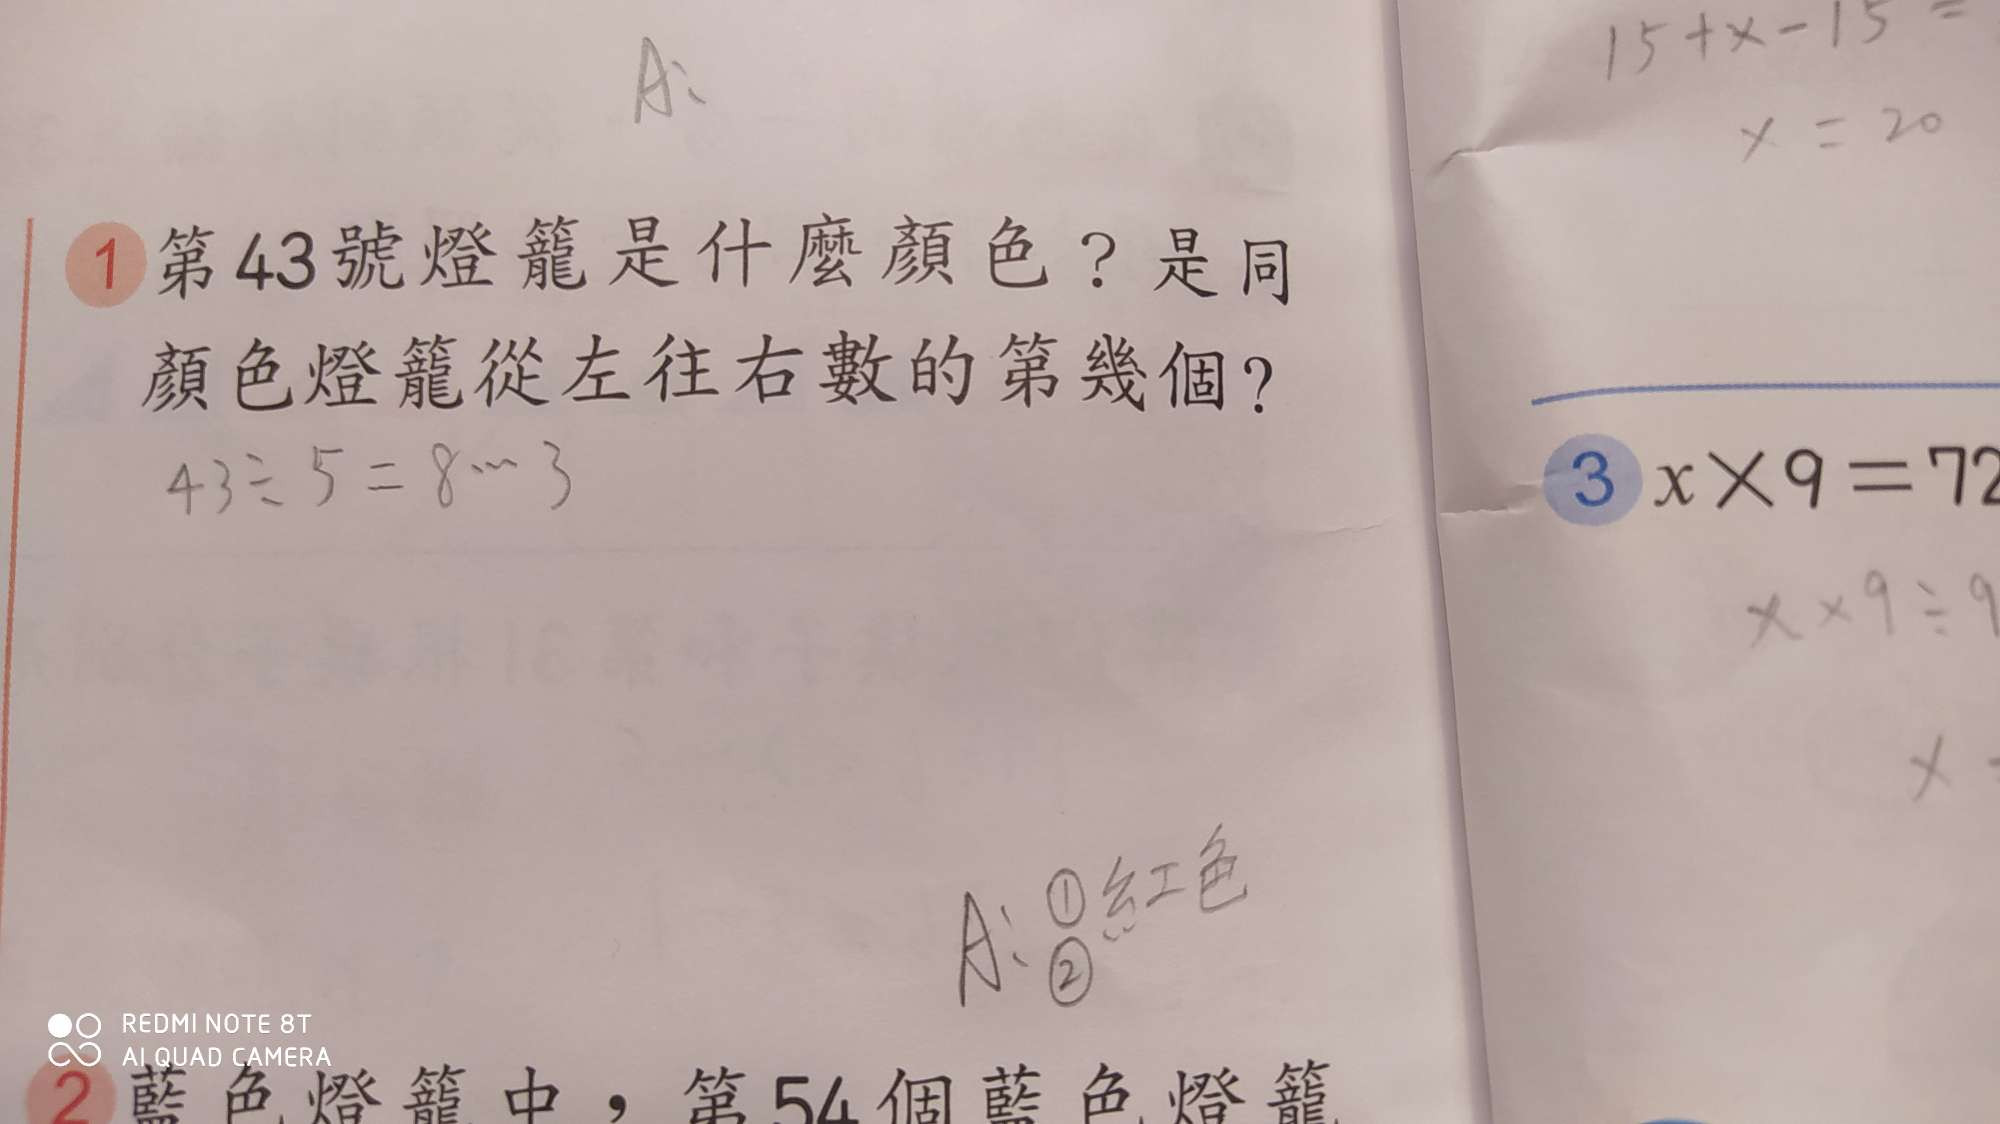 A:
1 第43號燈籠是什麼顏色？是同
顏色燈籠從左往右數的第幾個？
43÷5=8…3
A: ①紅色
②
2 藍色燈籠中，第54個藍色燈籠
15+x-15=
x=20
3 x×9=72
x×9÷9
x
REDMI NOTE 8T
AI QUAD CAMERA